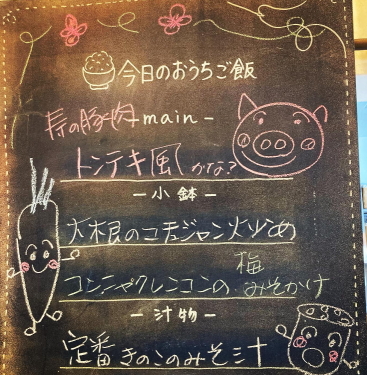 今日のおうちご飯
寿の豚肉main-
トンテキ風かな?
-小鉢-
大根のコチュジャン炒め
コンニャクレンコンの梅みそかけ
-汁物-
定番きのこのみそ汁